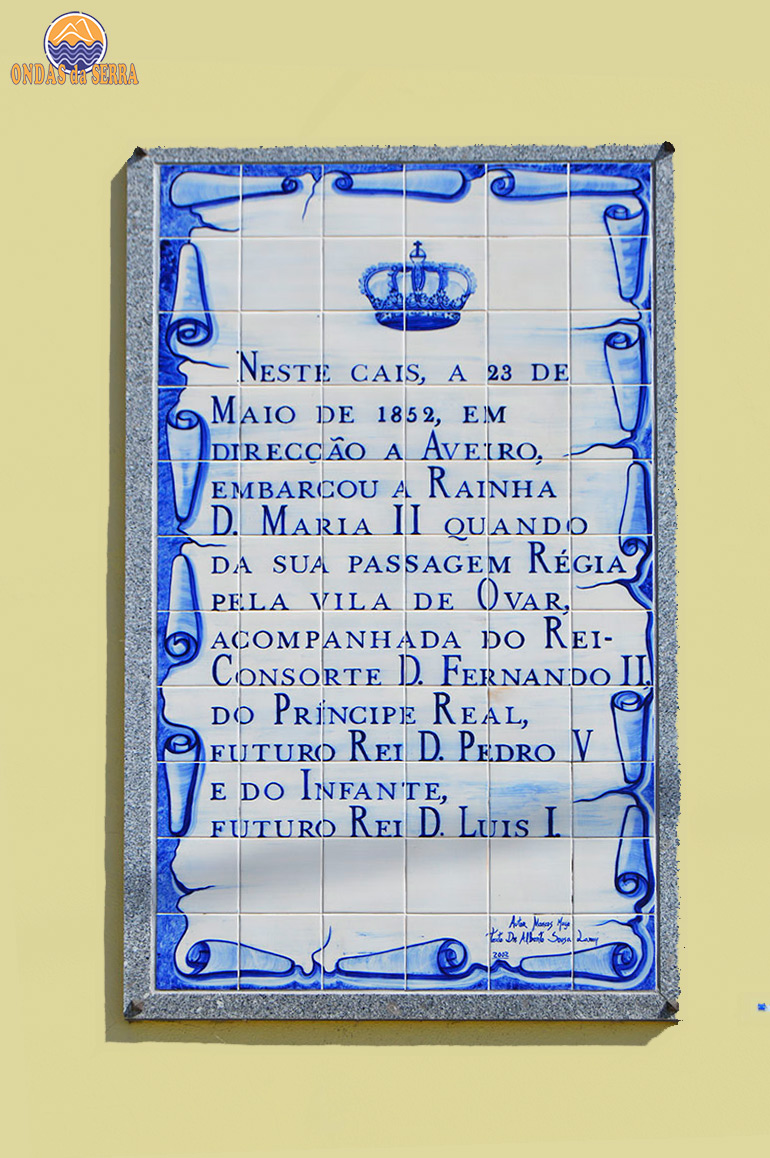 ONDAS da SERRA
NESTE CAIS, A 23 DE
MAIO DE 1852, EM
DIRECÇÃO A AVEIRO,
EMBARCOU A RAINHA
D. MARIA II QUANDO
DA SUA PASSAGEM RÉGIA
PELA VILA DE OVAR,
ACOMPANHADA DO REI-
CONSORTE D. FERNANDO II,
DO PRÍNCIPE REAL,
FUTURO REI D. PEDRO V
E DO INFANTE,
FUTURO REI D. LUIS I.
Autor Marcos Muge
Texto De Alberto Sousa Lamy